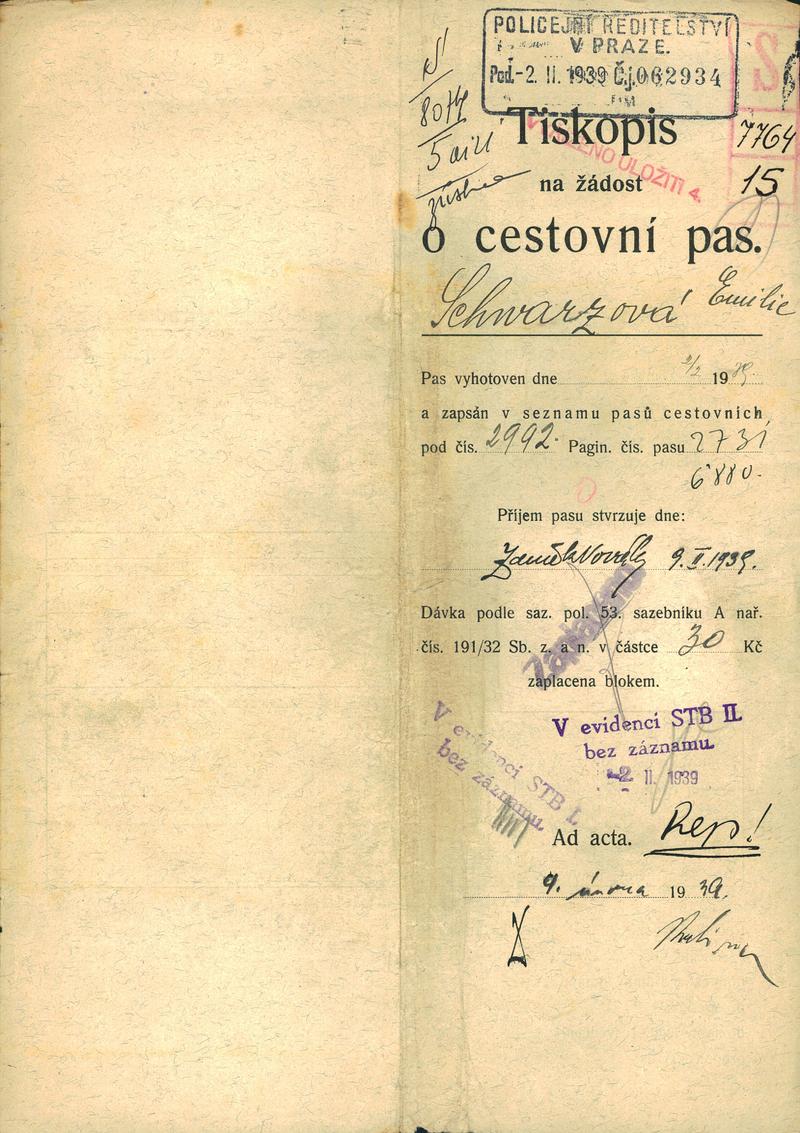 POLICEJNÍ ŘEDITELSTVÍ
V PRAZE.
Pod. -2. II. 1939 Č.j. 062934
8074
Tiskopis
7764
ULOŽITI 4.
na žádost
15
o cestovní pas.
Schwarzová Emilie
Pas vyhotoven dne 2/2 1939.
a zapsán v seznamu pasů cestovních
pod čís. 2992. Pagin. čís. pasu 2731
6880.
Příjem pasu stvrzuje dne:
9. II. 1939.
Zaplaceno
Dávka podle saz. pol. 53. sazebníku A nař.
čís. 191/32 Sb. z. a n. v částce 30 Kč
zaplacena blokem.
V evidenci STB II.
bez záznamu.
-2. II. 1939
V evidenci STB I.
bez záznamu.
Ad acta. Rep!
9. února 1939.